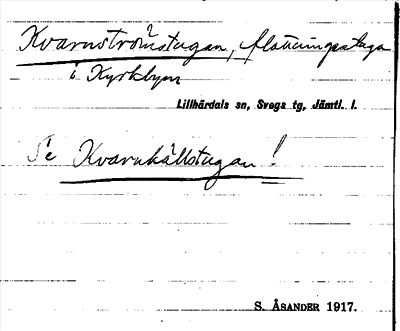 Kvarnströmstugan, flottningsstuga
i Kyrkbyn
Lillhärdals sn, Svegs tg, Jämtl. l.
Se Kvarnkällstugan!
S. ÅSANDER 1917.